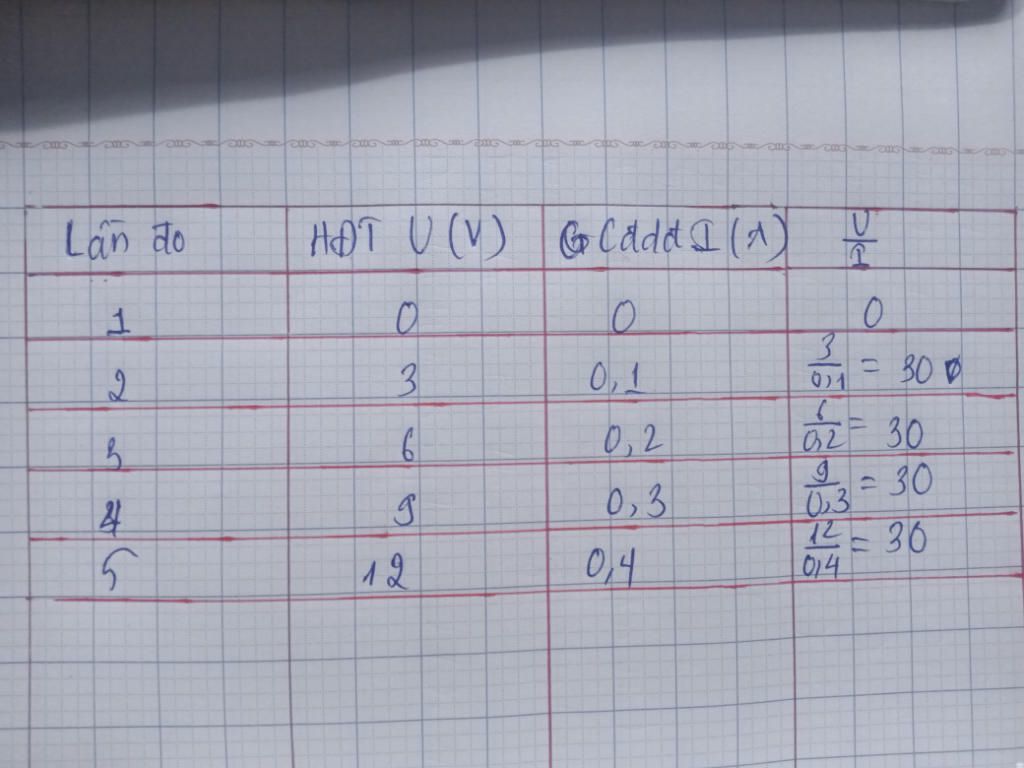 Lần đo HĐT U (V) CCdddđ I (A) U/I
1 0 0 0
2 3 0,1 3/0,1 = 30
3 6 0,2 6/0,2 = 30
4 9 0,3 9/0,3 = 30
5 12 0,4 12/0,4 = 30